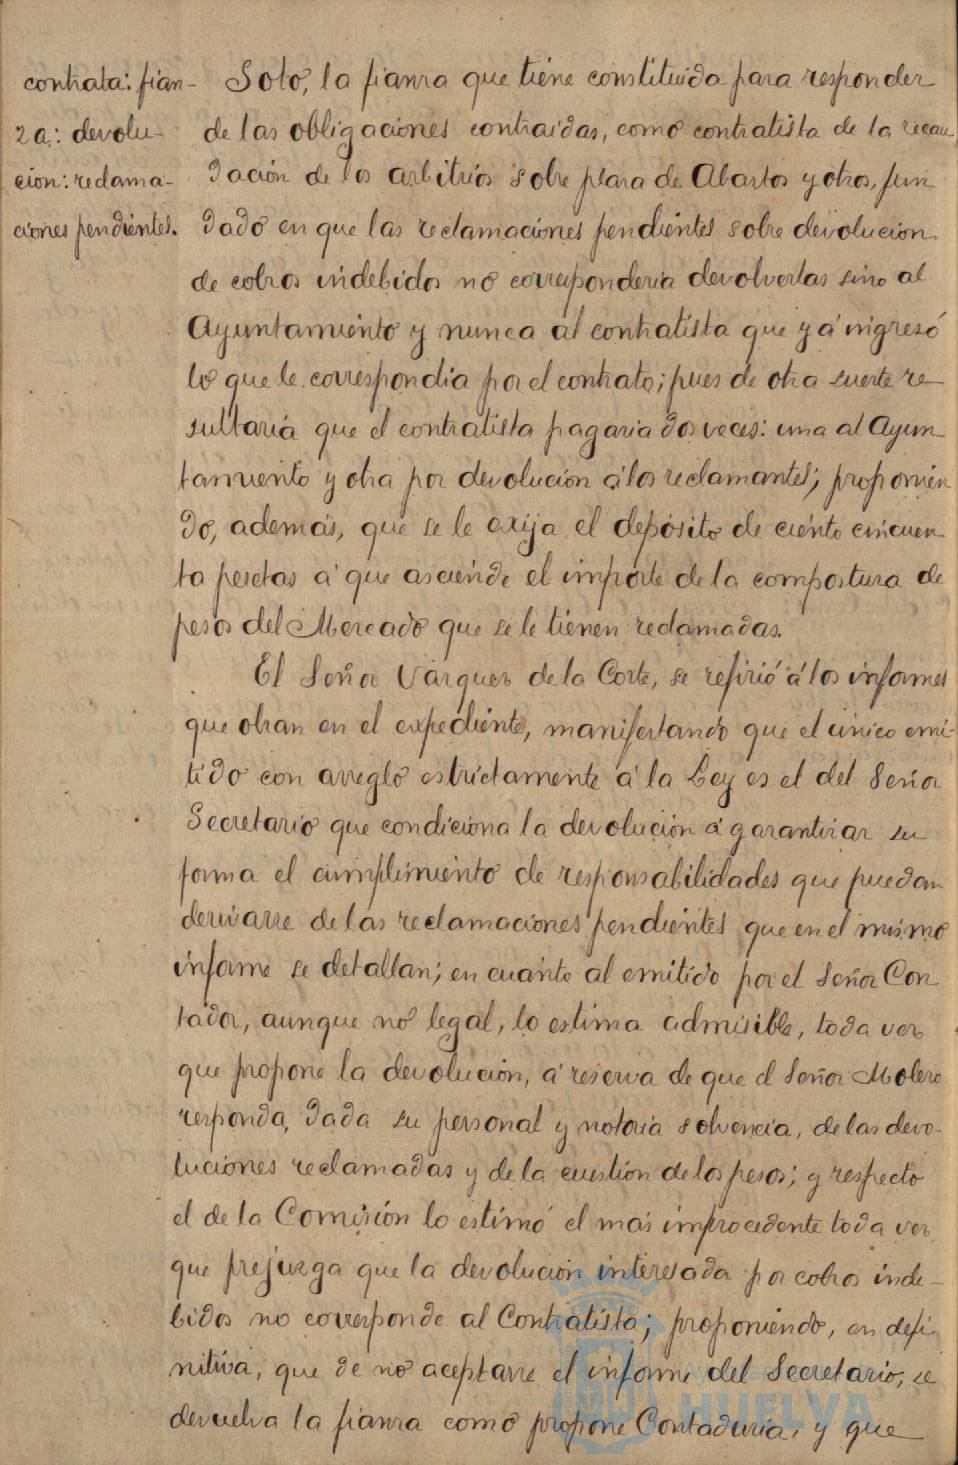 contrata: fian-
za: devolu-
ción: reclama-
ciones pendientes.
Soto, la fianza que tiene constituida para responder
de las obligaciones contraidas, como contratista de la recau
dación de los arbitrios sobre plaza de Abastos y otros, fun
dado en que las reclamaciones pendientes sobre devolución
de cobros indebidos no correspondería devolverlas sino al
Ayuntamiento y nunca al contratista que yá ingresó
lo que le correspondía por el contrato; pues de otra suerte re-
sultaría que el contratista pagaría dos veces: una al Ayun
tamiento y otra por devolución á los reclamantes; proponien
do, además, que se le exija el depósito de ciento cincuen
ta pesetas á que asciende el importe de la compostura de
pesos del Mercado que se le tienen reclamadas.
El Señor Vázquez de la Corte, se refirió á los informes
que obran en el expediente, manifestando que el único emi-
tido con arreglo estrictamente á la Ley es el del Señor
Secretario que condiciona la devolución á garantizar su
forma el cumplimiento de responsabilidades que puedan
derivarse de las reclamaciones pendientes que en el mismo
informe se detallan; en cuanto al emitido por el Señor Con
tador, aunque no legal, lo estima admisible, toda vez
que propone la devolución, á reserva de que el Señor Molero
responda, dada su personal y notoria solvencia, de las devo-
luciones reclamadas y de la cuestión de los pesos; y respecto
el de la Comisión lo estimó el más improcedente toda vez
que prejuzga que la devolución interesada por cobros inde-
bidos no corresponde al Contratista; proponiendo, en defi
nitiva, que de no aceptarse el informe del Secretario, se
devuelva la fianza como propone Contaduría, y que
Ayuntamiento
HUELVA